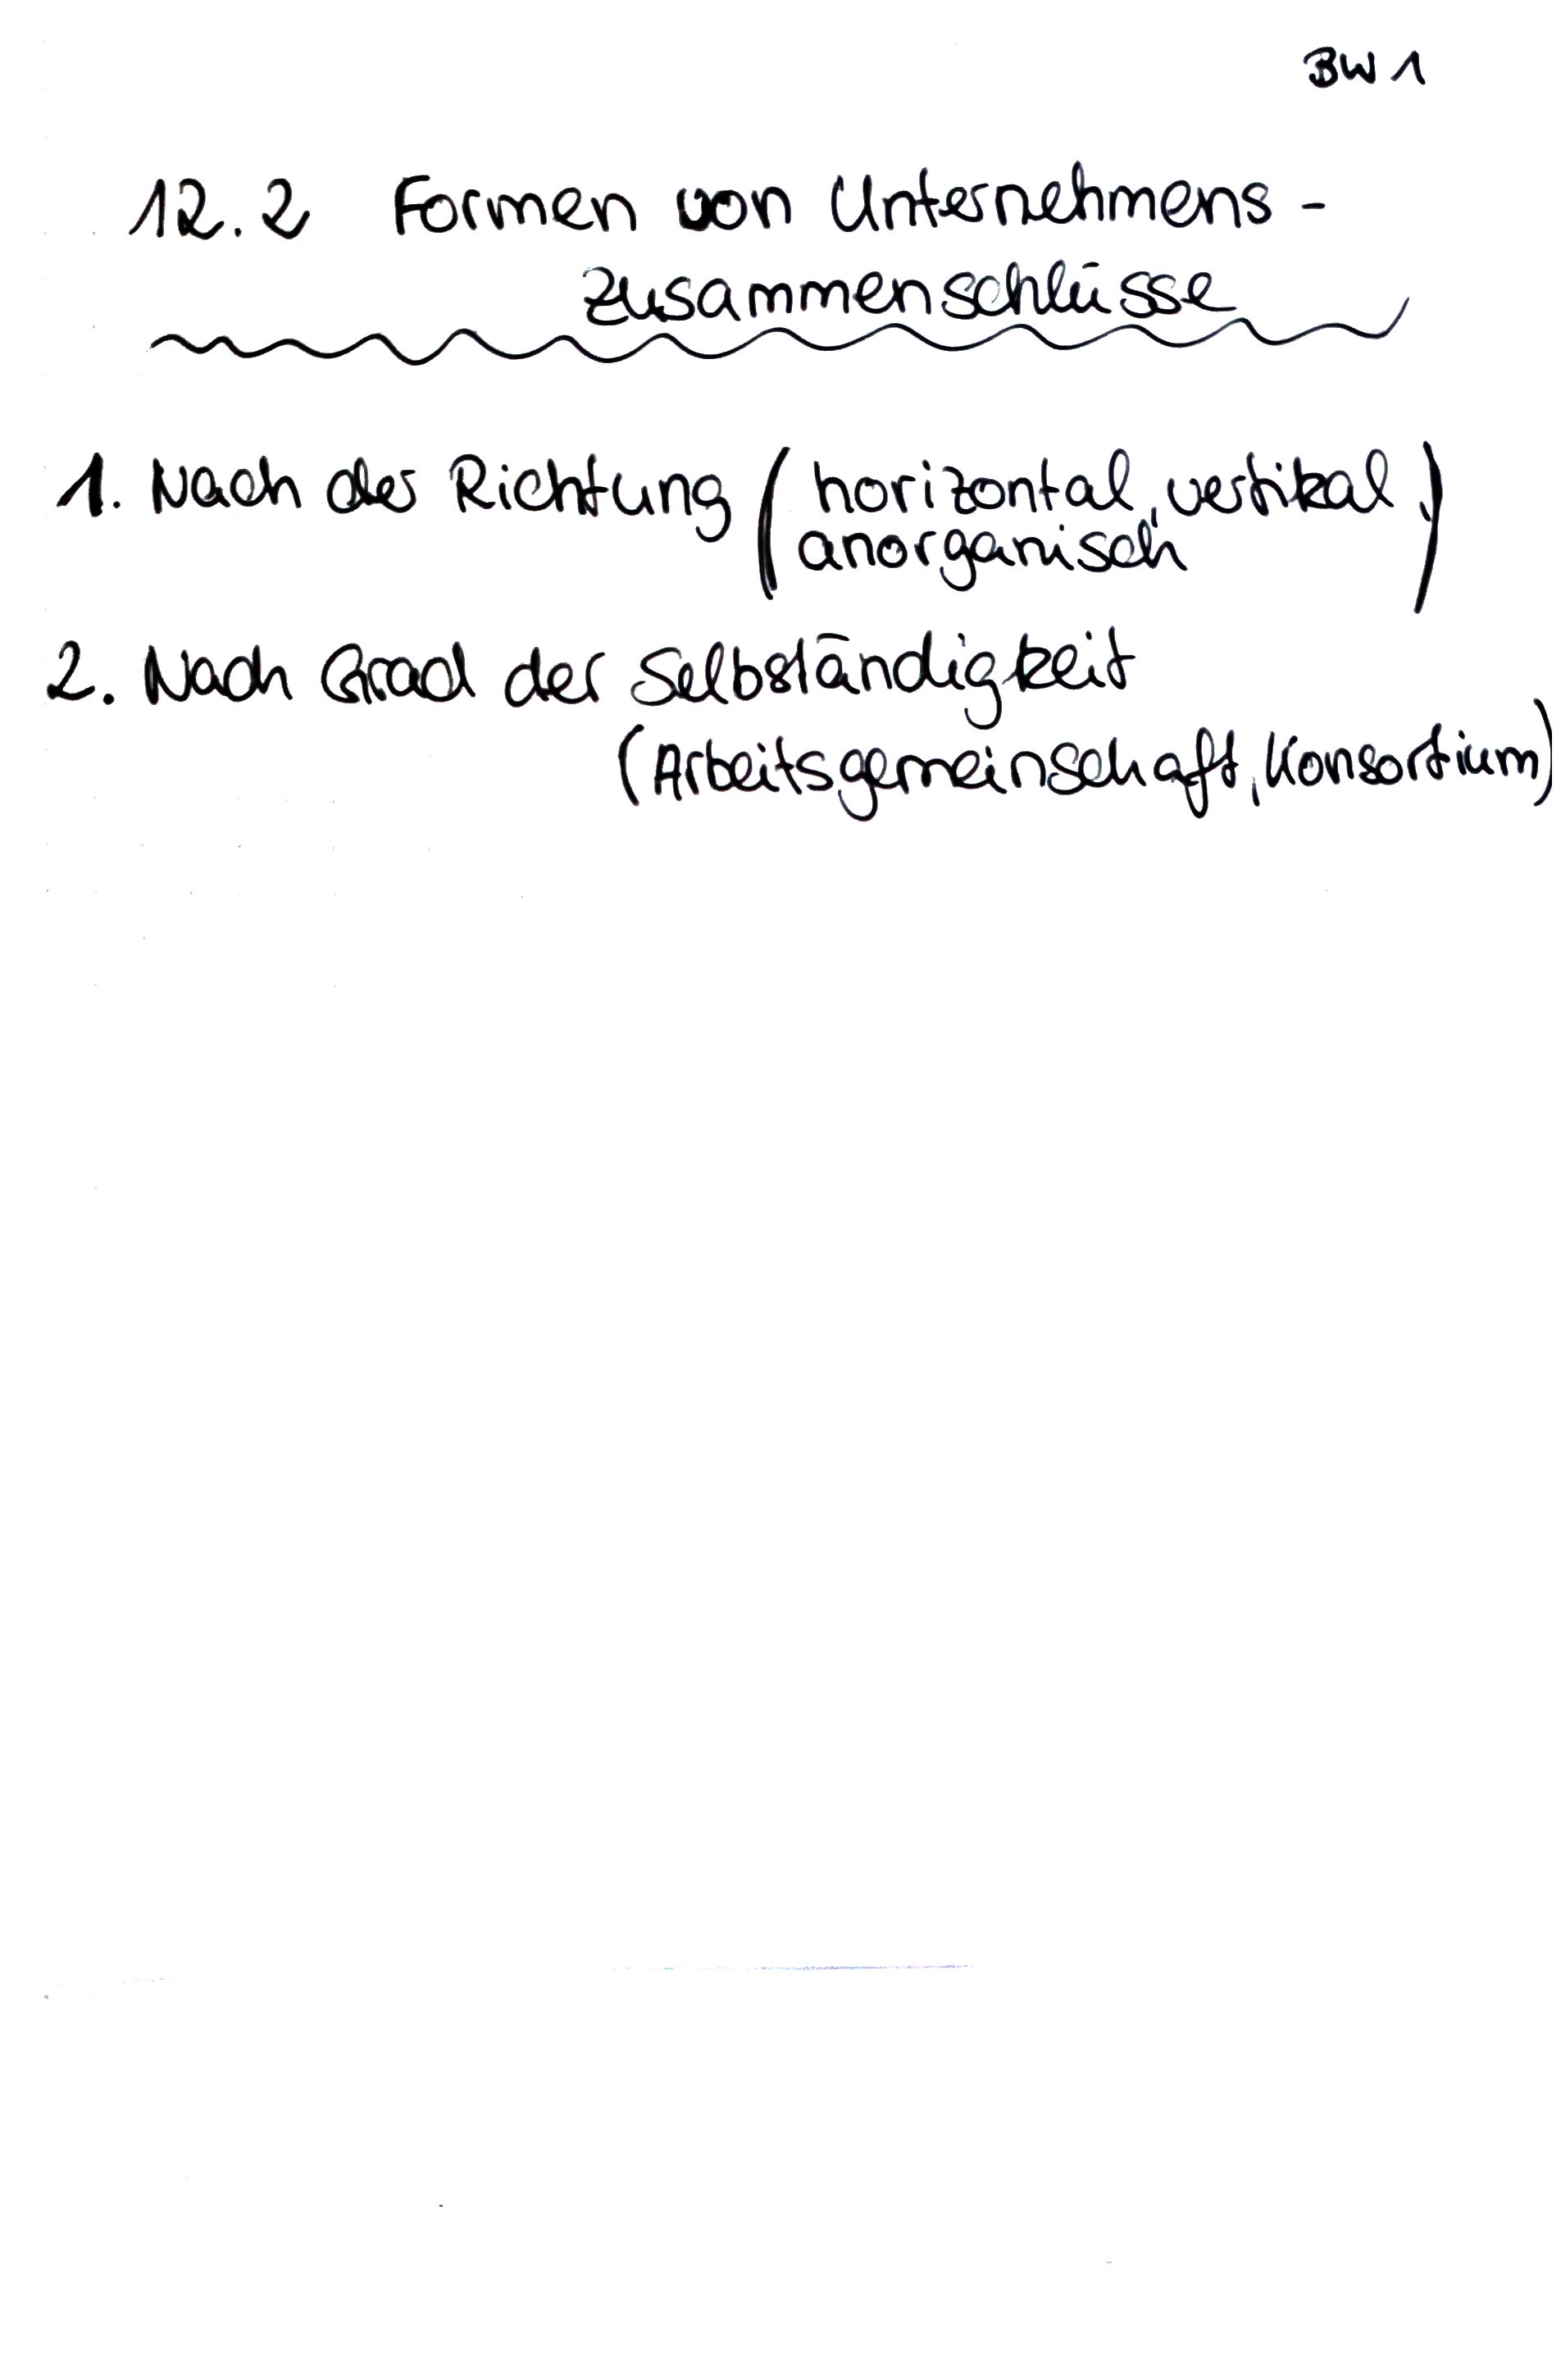 BW 1
12.2 Formen von Unternehmens-
zusammenschlüsse
1. Nach der Richtung (horizontal, vertikal,
anorganisch)
2. Nach Grad der Selbständigkeit
(Arbeitsgemeinschaft, Konsortium)